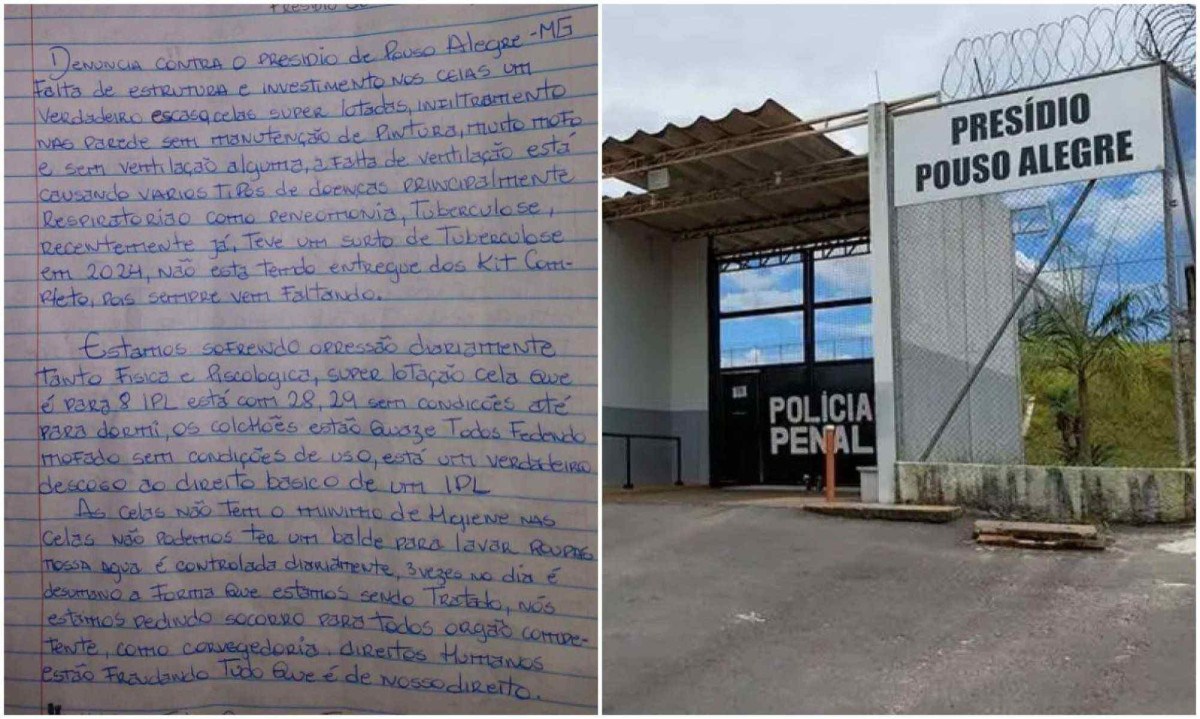 DENUNCIA CONTRA O PRESIDIO de POUSO ALEGRE-MG
Falta de ESTRUTURA e INVESTIMENTO NOS CELAS UM
VERDADEIRO escaso, celas SUPER lotadas, INFILTRAMENTO
NAS PAREDE SEM MANUTENÇÃO de PINTURA, MUITO MOFO
e sem VENTILAÇÃO alguma, a Falta de VENTILAÇÃO está
CAUSANDO VARIOS TIPOS de DOENÇAS PRINCIPALMENTE
RESPIRATORIAO como PENEOMONIA, TUBERCULOSE,
RECENTEMENTE já, TEVE UM SURTO de TUBERCULOSE
em 2024, NÃO ESTA TENDO ENTREGUE DOS KIT COM-
PLETO, POIS SEMPRE VEM FALTANDO.
ESTAMOS SOFRENDO OPRESSÃO DIARIAMENTE
TANTO FISICA e PISCOLOGICA, SUPER LOTAÇÃO cela QUE
é PARA 8 IPL ESTÁ COM 28, 29 SEM CONDIÇÕES ATÉ
PARA DORMI, OS COLCHÕES ESTÃO QUAZE TODOS FEDENDO
MOFADO SEM CONDIÇÕES DE USO, ESTÁ UM VERDADEIRO
DESCASO AO DIREITO BÁSICO DE UM IPL
AS CELAS NÃO TEM O MINIMO DE HGIENE NAS
CELAS NÃO PODEMOS TER UM BALDE PARA LAVAR ROUPAS
NOSSA AGUA É CONTROLADA DIARIAMENTE, 3 VEZES NO DIA É
DESUMANO A FORMA QUE ESTAMOS SENDO TRATADO, NÓS
ESTAMOS PEDINDO SOCORRO PARA TODOS ORGÃO COMPE-
TENTE, COMO CORREGEDORIA. DIREITOS HUMANOS
ESTÃO FRAUDANDO TUDO QUE É DE NOSSO DIREITO.
PRESÍDIO
POUSO ALEGRE
POLÍCIA
PENAL